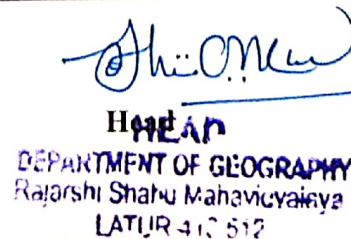 Head
HEAD
DEPARTMENT OF GEOGRAPHY
Rajarshi Shahu Mahavidyalaya
LATUR 413 512